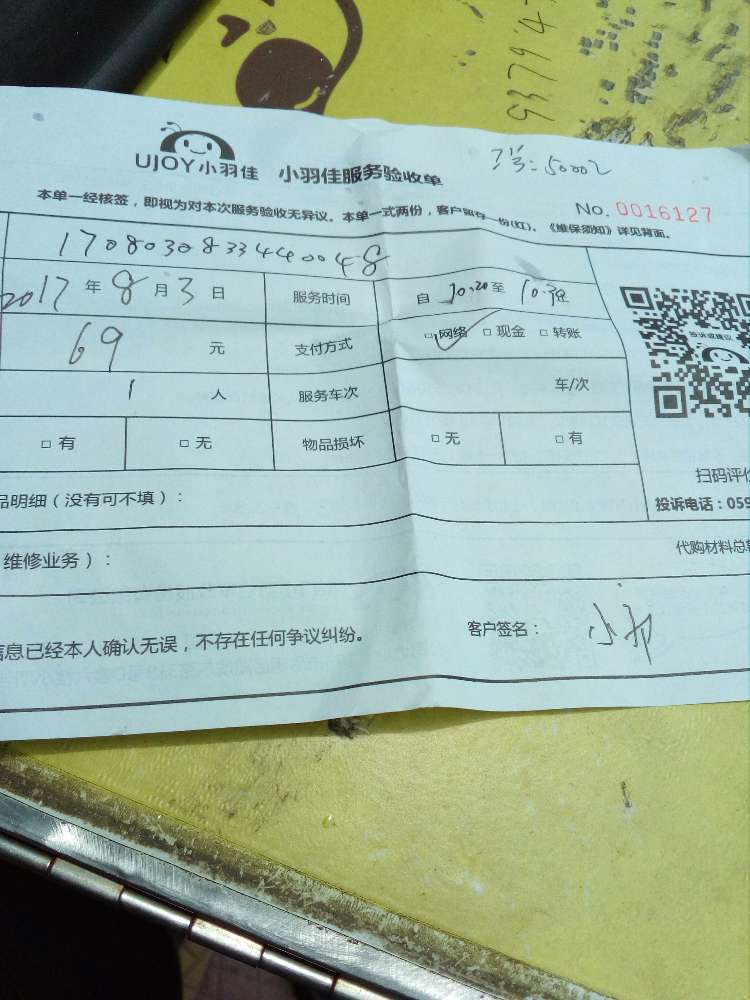 93794
UJOY小羽佳 小羽佳服务验收单
No. 0016127
本单一经核签,即视为对本次服务验收无异议。本单一式两份,客户留存一份(红)。《维保须知》详见背面。
17080308334440048
2017年8月3日 服务时间 自10:20至
69元 支付方式 □网络 □现金 □转账
投诉或建议
1人 服务车次 车/次
□有 □无 物品损坏 □无 □有
扫码评价
品明细(没有可不填):
投诉电话:059
维修业务):
代购材料总
信息已经本人确认无误,不存在任何争议纠纷。
客户签名: